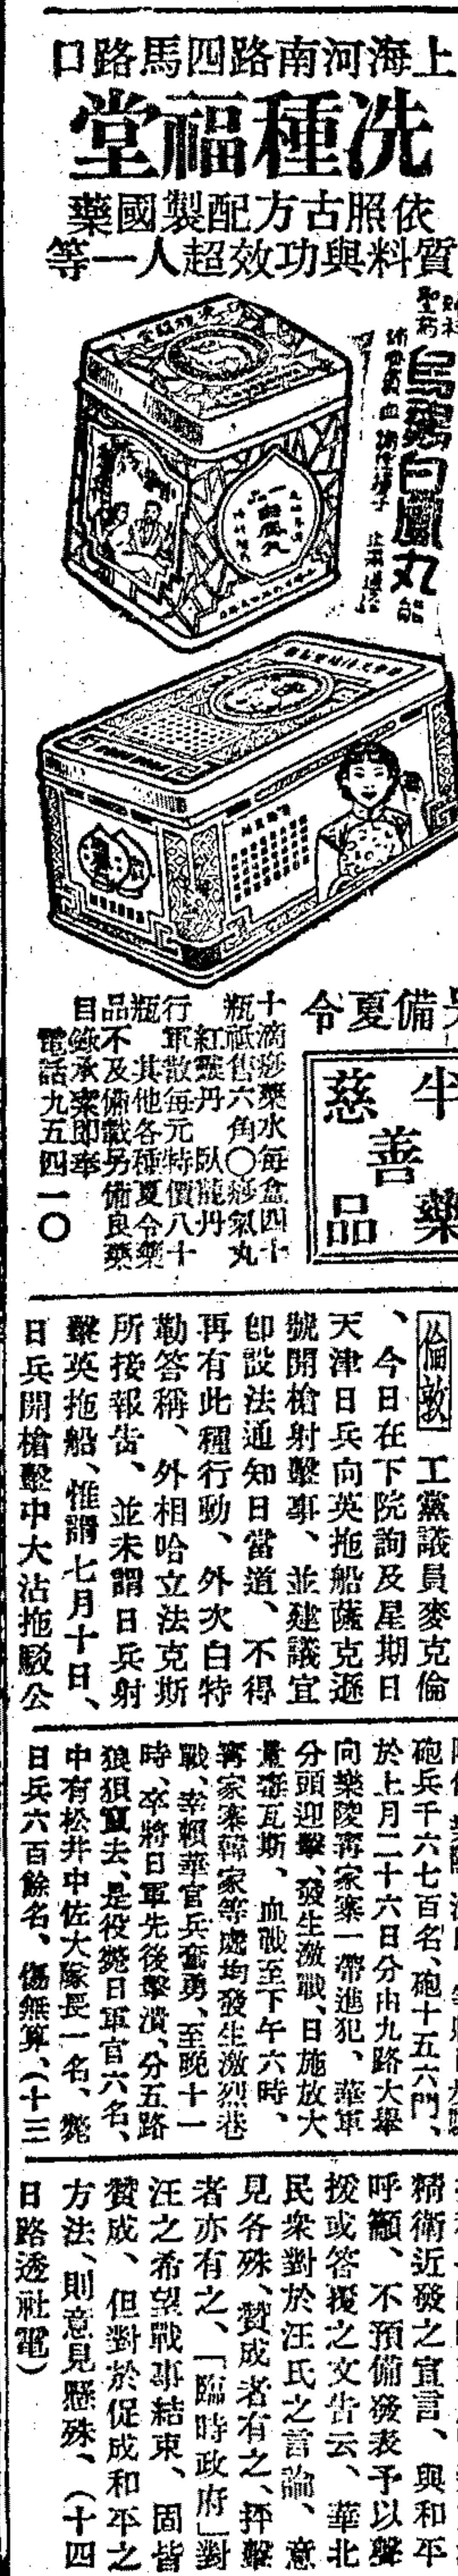 上海河南路四馬路口
洗種福堂
依照古方配製國藥
質料與功效超人一等
聖药
烏雞白鳳丸
備夏令
半
慈善
藥品
十滴痧藥水每盒四十
瓶祇售六角〇痧氣丸
紅靈丹　臥龍丹
行軍散每元特價八十
瓶　其他各種夏令藥
品不及備載另備良藥
目錄承索即奉
電話九五四一〇
【倫敦】　工黨議員麥克倫
、今日在下院詢及星期日
天津日兵向英拖船薩克遜
號開槍射擊事、並建議宜
卽設法通知日當道、不得
再有此種行動、外次白特
勒答稱、外相哈立法克斯
所接報告、並未謂日兵射
擊英拖船、惟謂七月十日、
日兵開槍擊中大沽拖駁公
砲兵千六七百名、砲十五六門、
於上月二十六日分由九路大舉
向樂陵甯家寨一帶進犯、華軍
分頭迎擊、發生激戰、日施放大
量毒瓦斯、血戰至下午六時、
甯家寨韓家等處均發生激烈巷
戰、幸賴華官兵奮勇、至晚十一
時、卒將日軍先後擊潰、分五路
狼狽竄去、是役斃日軍官六名、
中有松井中佐大隊長一名、斃
日兵六百餘名、傷無算、（十三
精衛近發之宣言、與和平
呼籲、不預備發表予以聲
援或答覆之文告云、華北
民衆對於汪氏之言論、意
見各殊、贊成者有之、抨擊
者亦有之、「臨時政府」對
汪之希望戰事結束、固皆
贊成、但對於促成和平之
方法、則意見懸殊、（十四
日路透社電）